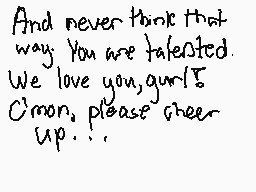 And never think that
way. You are talented.
We love you, gurl!
C'mon, please cheer
up...